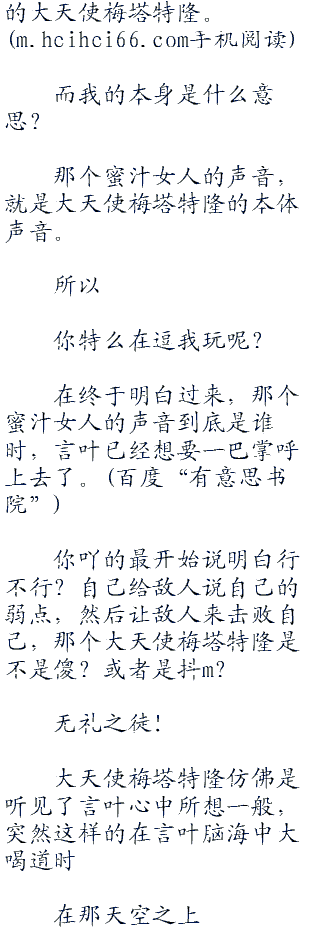 的大天使梅塔特隆。
(m.hcihci66.com手机阅读)
而我的本身是什么意
思？
那个蜜汁女人的声音，
就是大天使梅塔特隆的本体
声音。
所以
你特么在逗我玩呢？
在终于明白过来，那个
蜜汁女人的声音到底是谁
时，言叶已经想要一巴掌呼
上去了。(百度“有意思书
院”)
你吖的最开始说明白行
不行？自己给敌人说自己的
弱点，然后让敌人来击败自
己，那个大天使梅塔特隆是
不是傻？或者是抖m？
无礼之徒！
大天使梅塔特隆仿佛是
听见了言叶心中所想一般，
突然这样的在言叶脑海中大
喝道时
在那天空之上